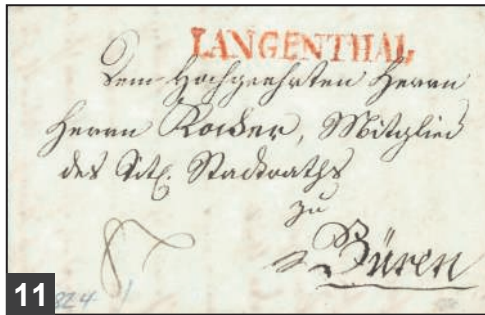 LANGENTHAL
Dem Hochgeehrten Herrn
Herrn Kocher, Mitglied
des Tit. Stadtraths
zu
Büren
11